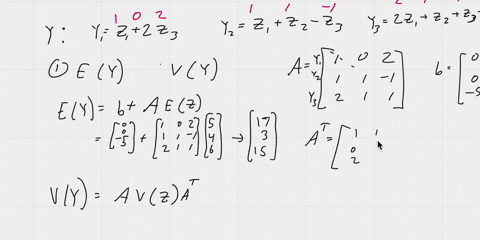 1 0 2 1 1 -1
Y: Y₁ = Z₁ + 2 Z₃ Y₂ = Z₁ + Z₂ - Z₃ Y₃ = 2Z₁ + Z₂ + Z₃
① E(Y) V(Y) A = Y₁ Y₂ Y₃ [1 0 2; 1 1 -1; 2 1 1] b = [0; 0; -5
E(Y) = b + A E(Z)
= [0; 0; -5] + [1 0 2; 1 1 -1; 2 1 1] [5; 4; 6] → [17; 3; 15] Aᵀ = [1 1; 0; 2
V(Y) = A V(Z) Aᵀ